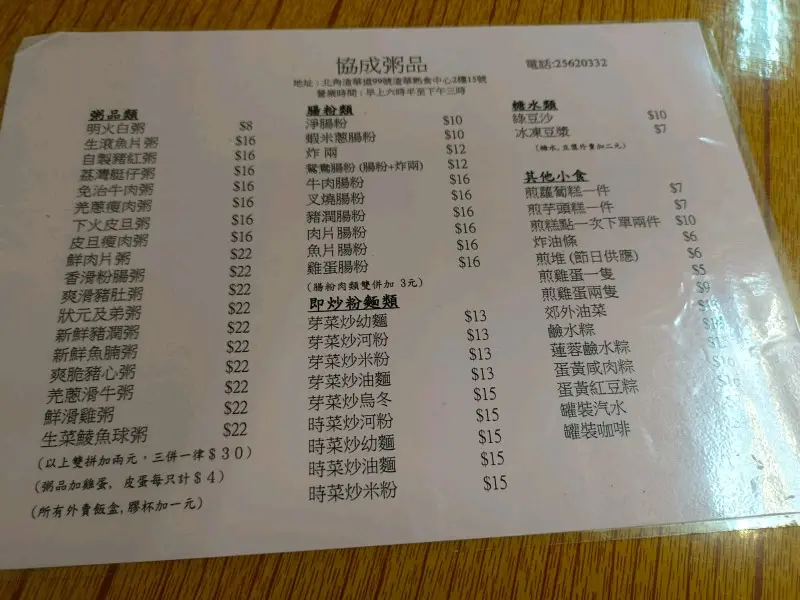 協成粥品
電話:25620332
地址 : 北角渣華道99號渣華熟食中心2樓15號
營業時間 : 早上六時半至下午三時
粥品類
明火白粥 $8
生滾魚片粥 $16
自製豬紅粥 $16
荔灣艇仔粥 $16
免治牛肉粥 $16
羌蔥瘦肉粥 $16
下火皮旦粥 $16
皮旦瘦肉粥 $16
鮮肉片粥 $22
香滑粉腸粥 $22
爽滑豬肚粥 $22
狀元及弟粥 $22
新鮮豬潤粥 $22
新鮮魚腩粥 $22
爽脆豬心粥 $22
羌蔥滑牛粥 $22
鮮滑雞粥 $22
生菜鯪魚球粥 $22
(以上雙拼加兩元，三併一律$30)
(粥品加雞蛋, 皮蛋每只計$4)
(所有外賣飯盒,膠杯加一元)
腸粉類
淨腸粉 $10
蝦米蔥腸粉 $10
炸 兩 $12
鴛鴦腸粉 (腸粉+炸兩) $12
牛肉腸粉 $16
叉燒腸粉 $16
豬潤腸粉 $16
肉片腸粉 $16
魚片腸粉 $16
雞蛋腸粉 $16
(腸粉肉類雙併加 3元)
即炒粉麵類
芽菜炒幼麵 $13
芽菜炒河粉 $13
芽菜炒米粉 $13
芽菜炒油麵 $13
芽菜炒烏冬 $15
時菜炒河粉 $15
時菜炒幼麵 $15
時菜炒油麵 $15
時菜炒米粉 $15
糖水類
綠豆沙 $10
冰凍豆漿 $7
(糖水,豆漿外賣加二元)
其他小食
煎蘿蔔糕一件 $7
煎芋頭糕一件 $7
煎糕點一次下單兩件 $10
炸油條 $6
煎堆 (節日供應) $6
煎雞蛋一隻 $5
煎雞蛋兩隻 $9
郊外油菜
鹼水粽
蓮蓉鹼水粽
蛋黃咸肉粽
蛋黃紅豆粽
罐裝汽水
罐裝咖啡